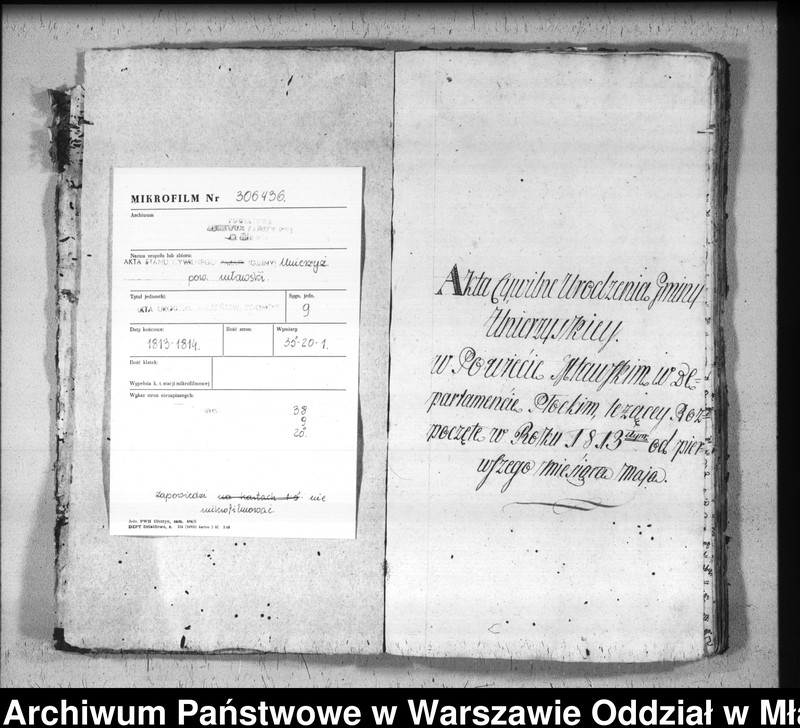 MIKROFILM Nr 306436.
Archiwum
Nazwa zespołu lub zbioru:
AKTA STANU CYWILNEGO GMINY Unierzyż
pow. mławski
Tytuł jednostki:
Sygn. jedn.
AKTA URODZEŃ
9
Daty końcowe:
Ilość stron:
Wymiary
1813-1814.
35-20-1.
Ilość klatek:
Wypełnia k. t. stacji mikrofilmowej
Wykaz stron niezapisanych:
38
9
20
zapowiedzi na kartach 1-5 nie
mikrofilmować
Akta Cywilne Urodzenia Gminy
Unierzyskiey.
w Powiecie Mławskim w De-
partamencie Płockim leżącey Roz-
poczęte w Roku 1813tym od pier-
wszego miesiąca maja.
Archiwum Państwowe w Warszawie Oddział w Mła